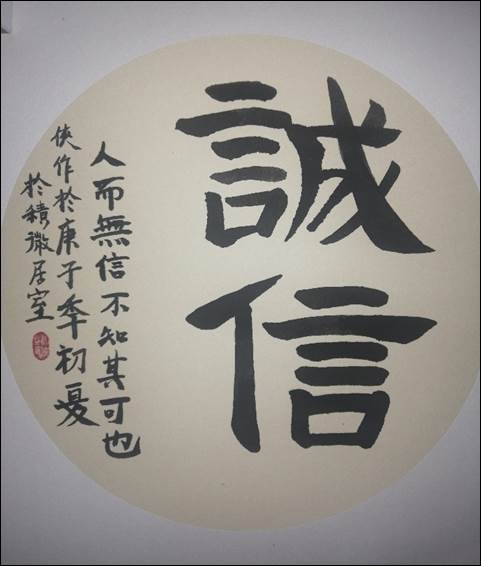 誠信
人而無信不知其可也
侠作於庚子季初夏
於積微居室